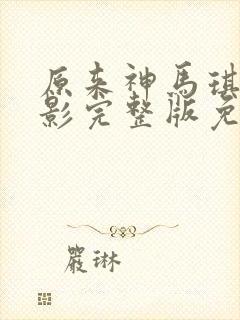 原来神馬琪
影完整版免
嚴琳